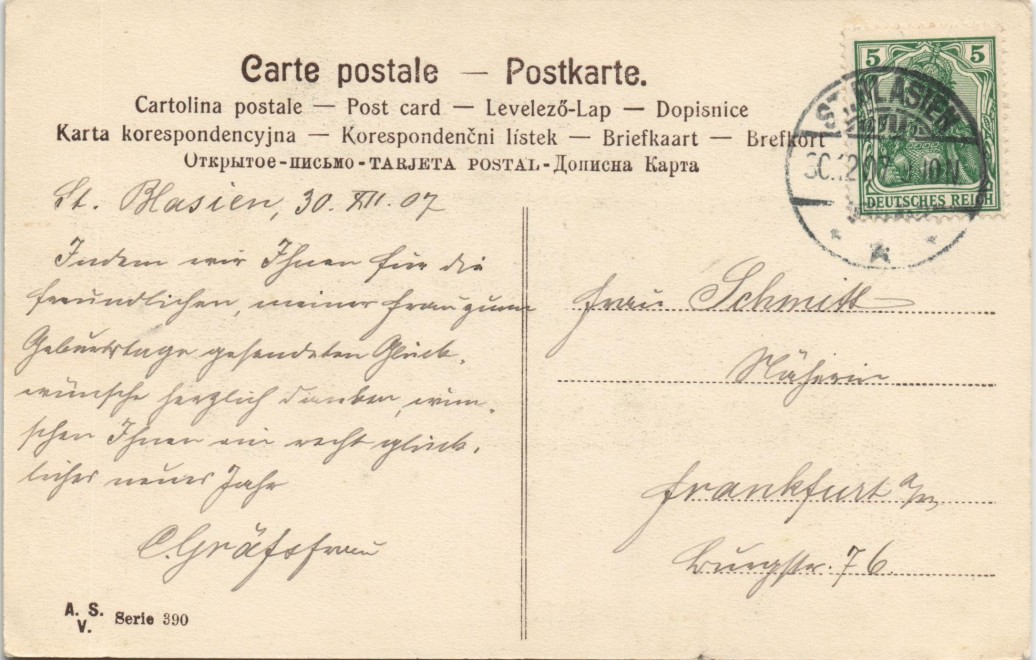 Carte postale — Postkarte.
Cartolina postale — Post card — Levelező-Lap — Dopisnice
Karta korespondencyjna — Korespondenční lístek — Briefkaart — Brefkort
Открытое-письмо-TARJETA POSTAL-Дописна Карта
5 5
DEUTSCHES REICH
ST. BLASIEN
30.12.07. 10-11
St. Blasien, 30. XII. 07
Indem wir Ihnen für die
freundlichen, meiner Frau zum
Geburtstage gesendeten Glück-
wünsche herzlich danken, wün-
schen Ihnen ein recht glück-
liches neues Jahr
Frau Schmitt
Näherin
Frankfurt a/m
Burgstr. 76.
A. S.
V.
Serie 390